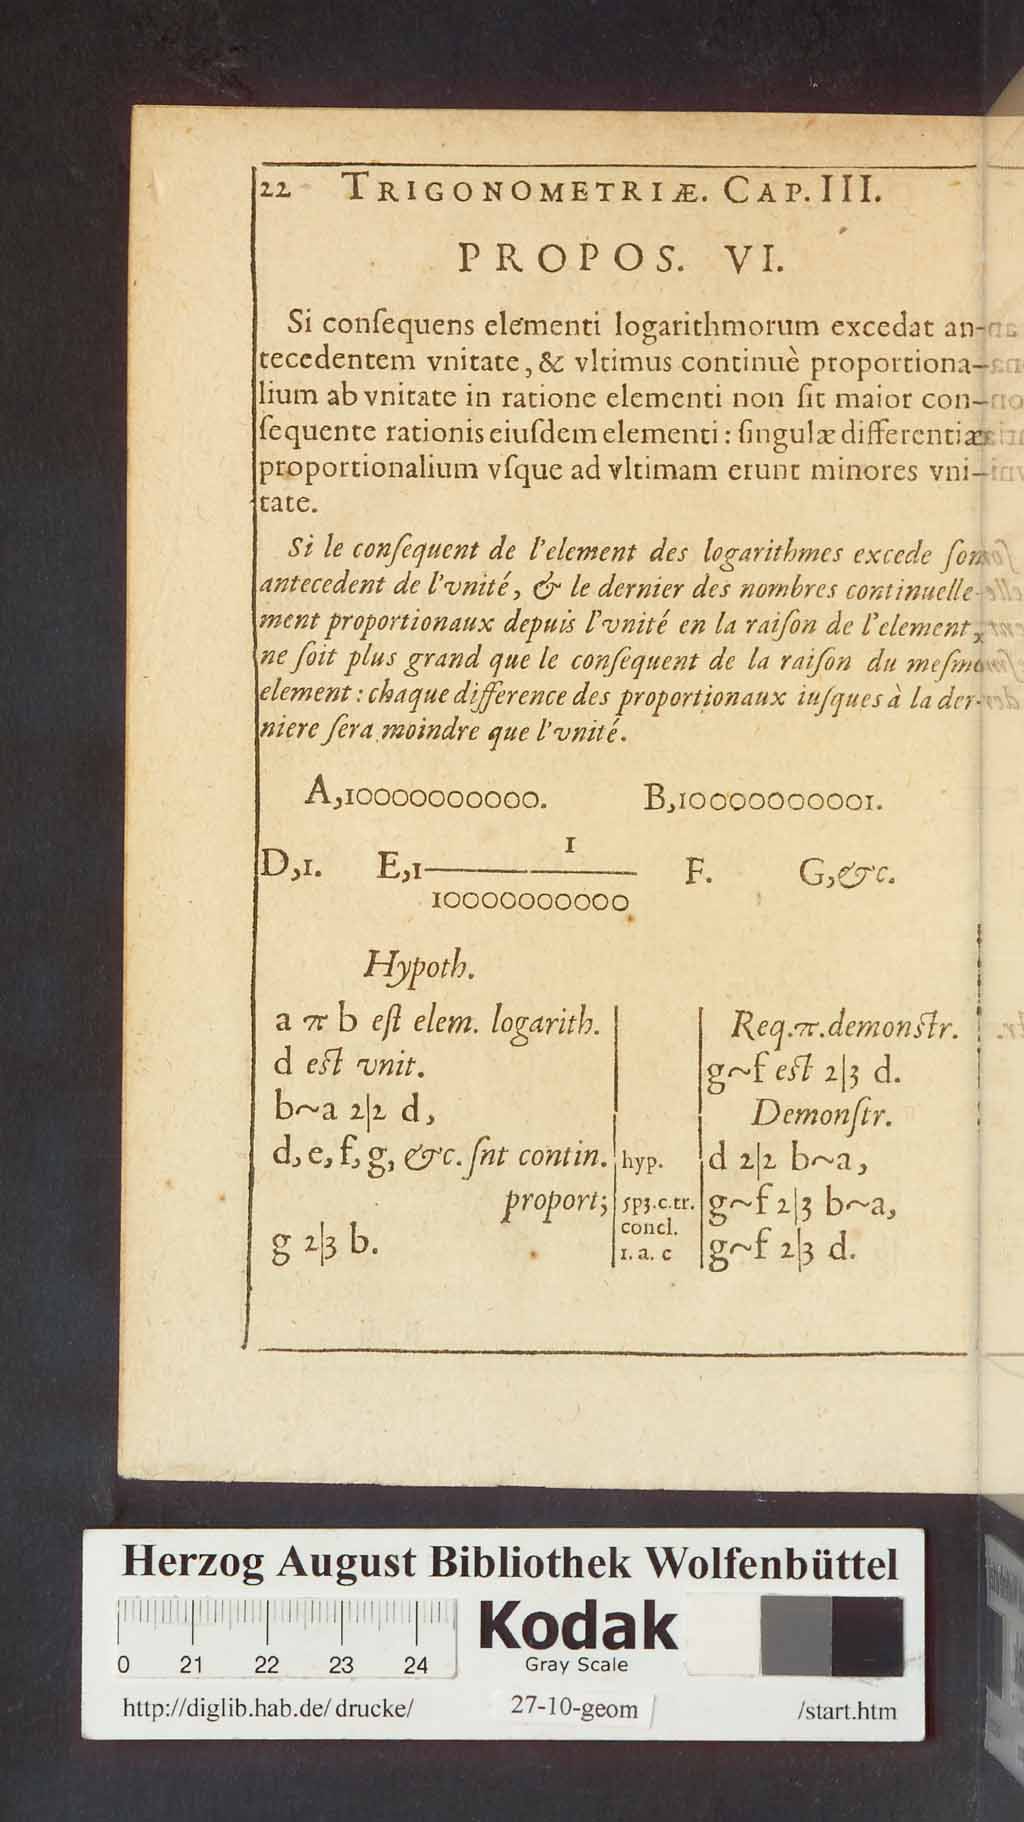 22 TRIGONOMETRIÆ. CAP. III.
PROPOS. VI.
Si conſequens elementi logarithmorum excedat an-
tecedentem vnitate, & vltimus continuè proportiona-
lium ab vnitate in ratione elementi non ſit maior con-
ſequente rationis eiuſdem elementi : ſingulæ differentiæ
proportionalium vſque ad vltimam erunt minores vni-
tate.
Si le conſequent de l'element des logarithmes excede ſon
antecedent de l'vnité, & le dernier des nombres continuelle-
ment proportionaux depuis l'vnité en la raiſon de l'element,
ne ſoit plus grand que le conſequent de la raiſon du meſme
element : chaque difference des proportionaux iuſques à la der-
niere ſera moindre que l'vnité.
A,10000000000. B,10000000001.
D,1. E,1 1/10000000000 F. G,&c.
Hypoth.
a π b eſt elem. logarith.
d eſt vnit.
b~a 2|2 d,
d, e, f, g, &c. ſnt contin.
proport;
g 2|3 b.
Req.π.demonſtr.
g~f eſt 2|3 d.
Demonſtr.
hyp. d 2|2 b~a,
5p3.c.tr. g~f 2|3 b~a,
concl.
1. a. c g~f 2|3 d.
Herzog August Bibliothek Wolfenbüttel
0 21 22 23 24
Kodak
Gray Scale
http://diglib.hab.de/drucke/ 27-10-geom /start.htm